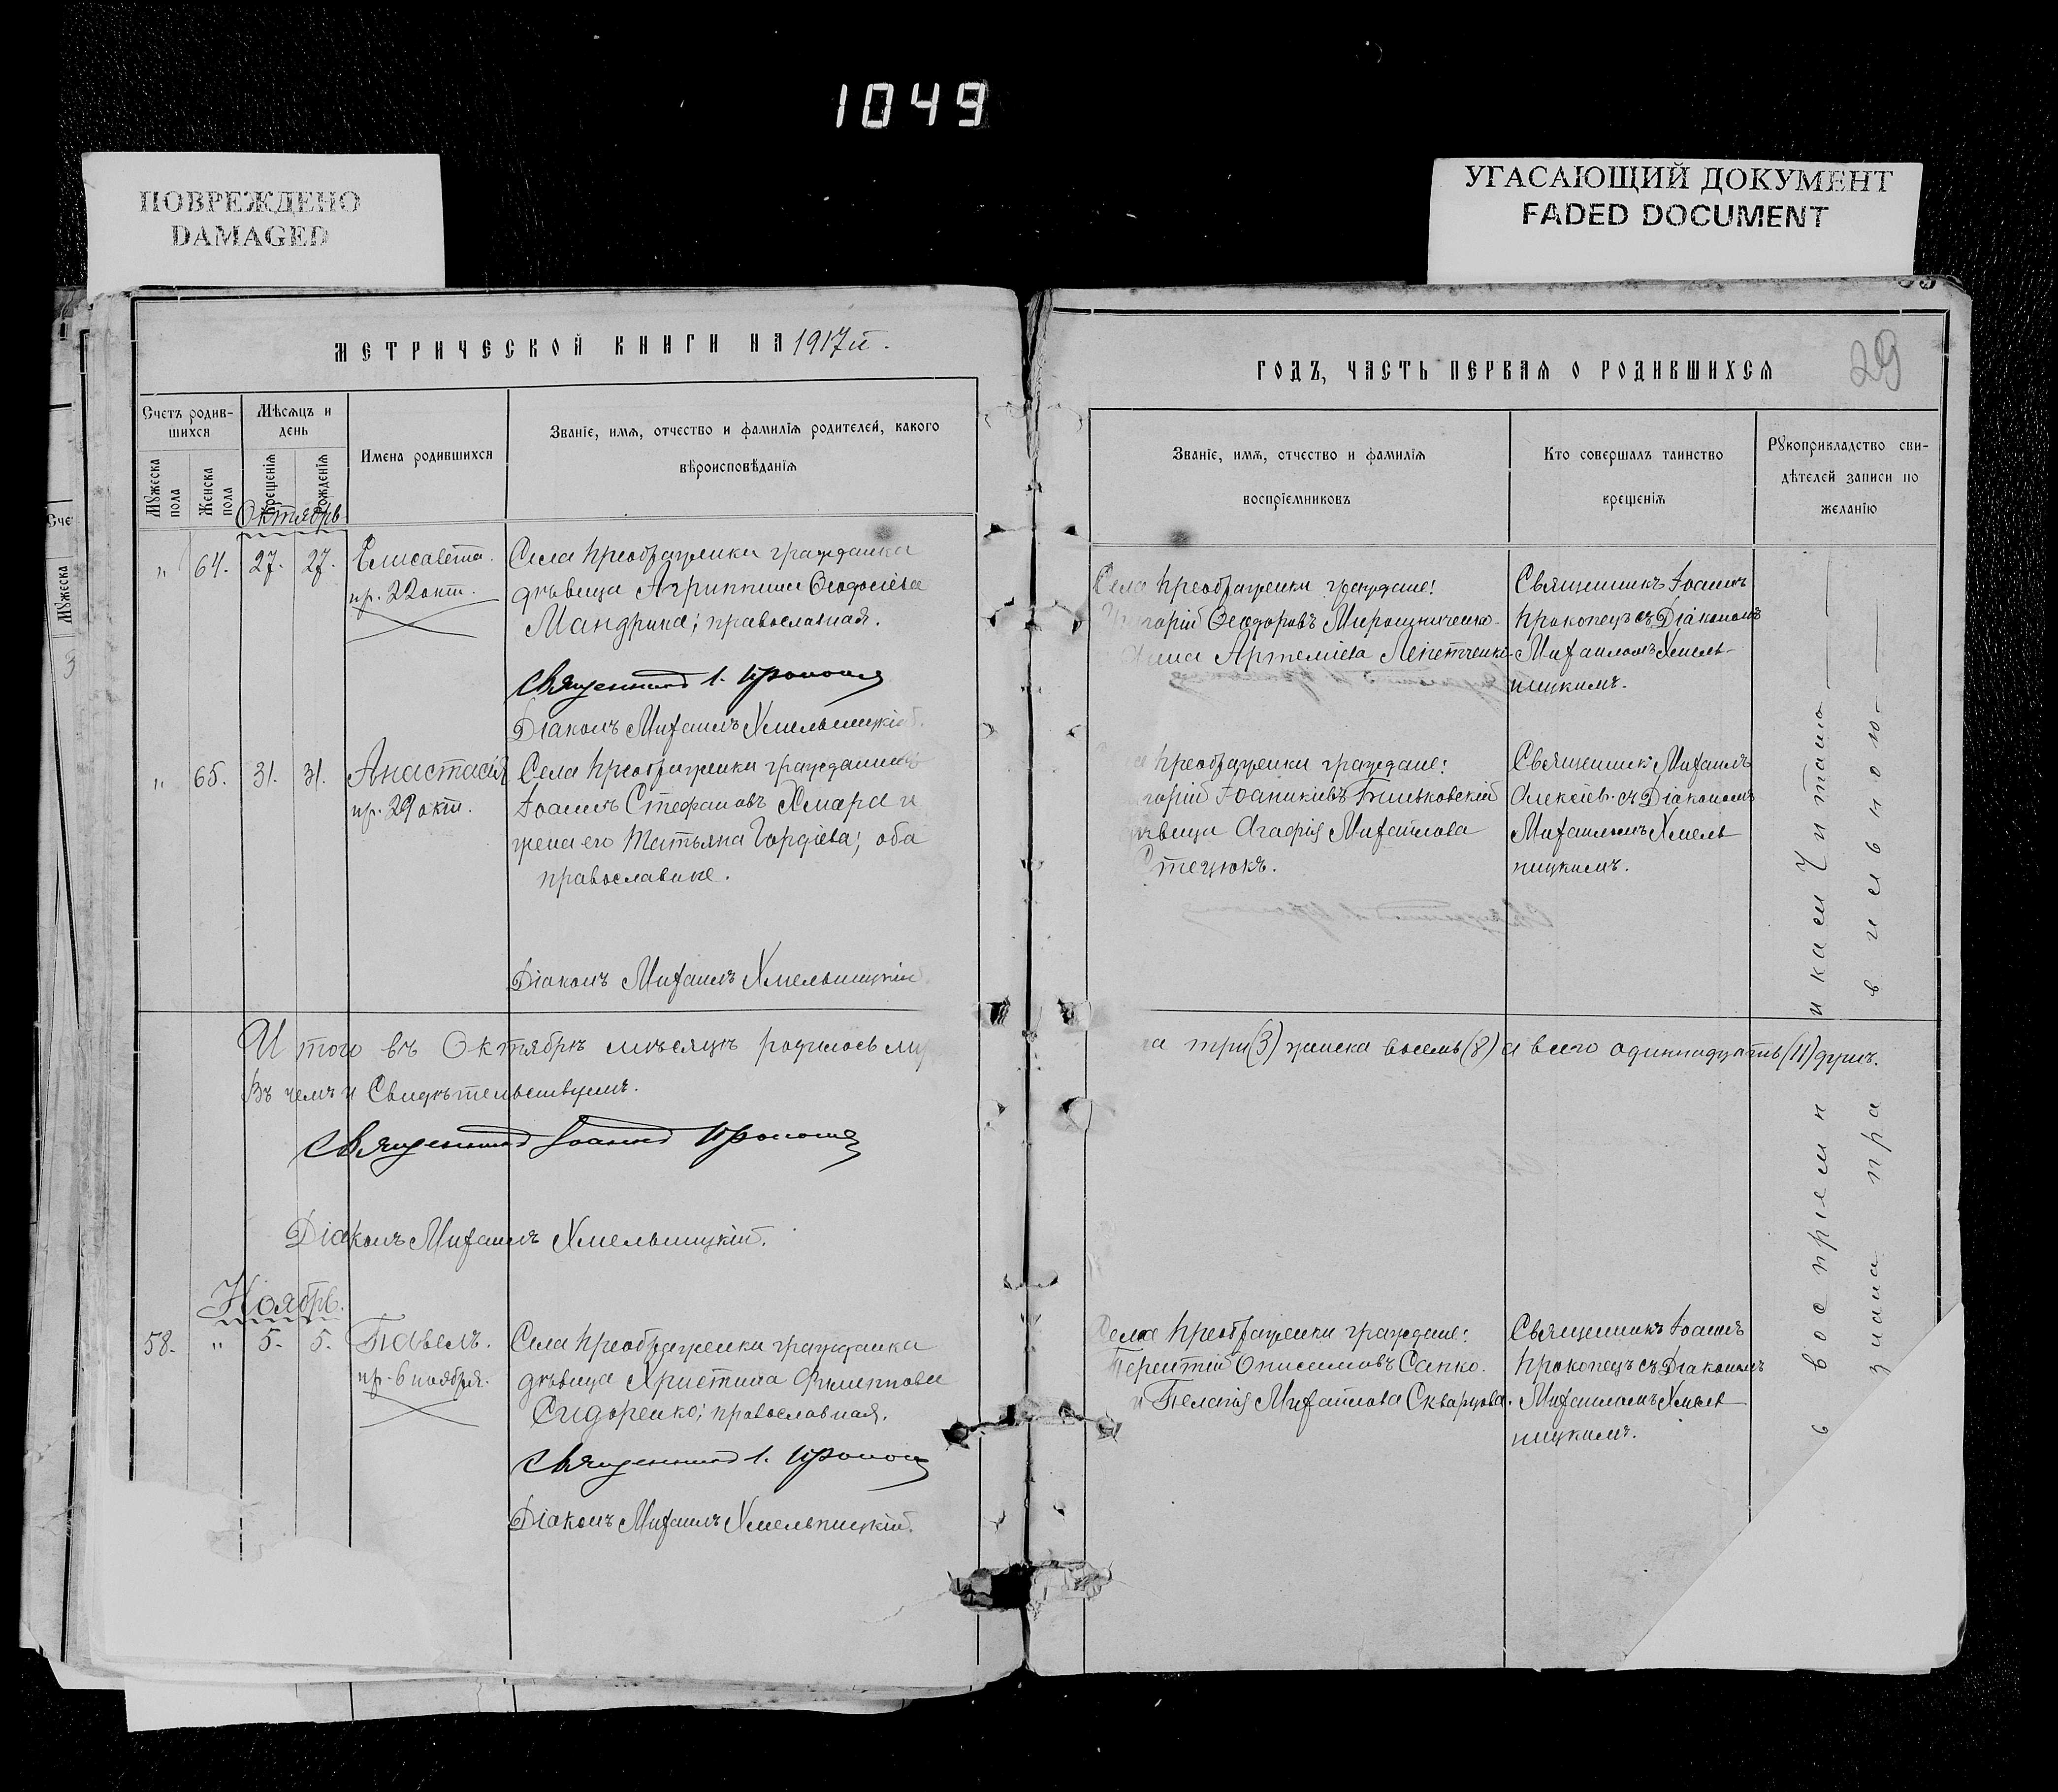 1049
ПОВРЕЖДЕНО
DAMAGED
УГАСАЮЩИЙ ДОКУМЕНТ
FADED DOCUMENT
МЕТРИЧЕСКОЙ КНИГИ НА 1917 й.
Счетъ родив-
шихся
Мужеска пола
Женска пола
Мѣсяцъ и
день
Крещенія
Рожденія
Имена родившихся
Званіе, имя, отчество и фамилія родителей, какого
вѣроисповѣданія
Октябрь
„ 64. 27. 27. Елисавета.
пр. 22 окт.
Села Преображенки гражданка
дѣвица Агриппина Ѳеодосіева
Мандрика; православная.
Священникъ І.
Діаконъ Михаилъ Хмельницкій.
„ 65. 31. 31. Анастасія
пр. 29 окт.
Села Преображенки гражданинъ
Іоаннъ Стефановъ Хмара и
жена его Татьяна Гордіева; оба
православные.
Діаконъ Михаилъ Хмельницкій
Итого въ Октябрѣ мѣсяцѣ родилось му
Въ чемъ и Свидѣтельствуемъ.
Священникъ Іоаннъ
Діаконъ Михаилъ Хмельницкій.
Ноябрь.
58. „ 5. 5. Павелъ.
пр. 6 ноября.
Села Преображенки гражданка
дѣвица Христина Филиппова
Сидоренко; православная.
Священникъ І.
Діаконъ Михаилъ Хмельницкій.
29
ГОДЪ, ЧАСТЬ ПЕРВАЯ О РОДИВШИХСЯ
Званіе, имя, отчество и фамилія
воспріемниковъ
Кто совершалъ таинство
крещенія
Рукоприкладство сви-
дѣтелей записи по
желанію
Села Преображенки граждане:
горій Ѳеодоровъ Мирошниченко
Артеміева
Священникъ Іоаннъ
Прокопецъ съ Діакономъ
Михаиломъ Хмель-
ницкимъ.
Преображенки граждане:
горій Іоаникіевъ
вица Агафія Михайлова
Стецюкъ.
Священникъ Михаилъ
Алексіев. съ Діакономъ
Михаиломъ Хмель
ницкимъ.
ка три (3) женска восемь (8) а всего одиннадцать (11) душъ.
Села Преображенки граждане:
Терентій Онисимовъ Сапко.
и Пелагія Михайлова Скварцова.
Священникъ Іоаннъ
Прокопецъ съ Діакономъ
Михаиломъ Хмель
ницкимъ.
воспріемникам Читано
зна пра вильною